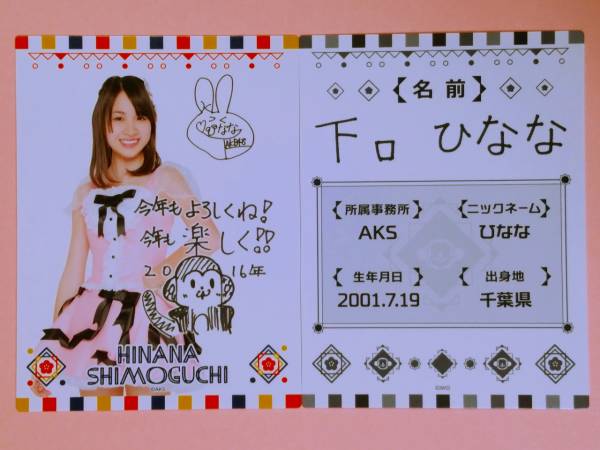 今年もよろしくね!
今年も楽しく!!
2016年
HINANA
SHIMOGUCHI
©AKS
【名前】
下口 ひなな
【所属事務所】
AKS
【ニックネーム】
ひなな
【生年月日】
2001.7.19
【出身地】
千葉県
©AKS